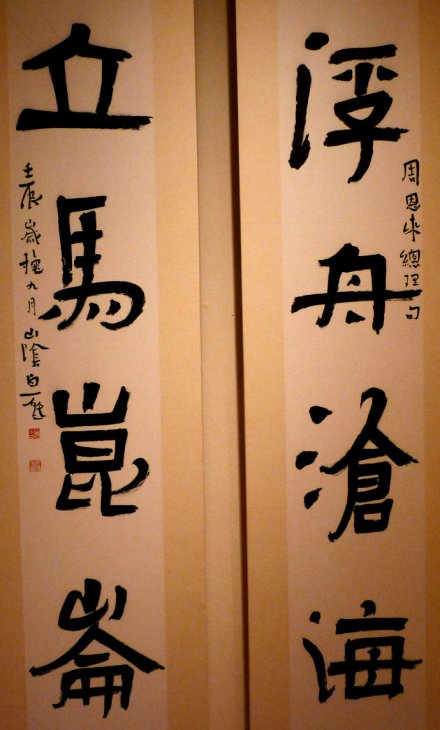 浮舟滄海
周恩来總理句
立馬崑崙
壬辰歲穐九月山陰白雄